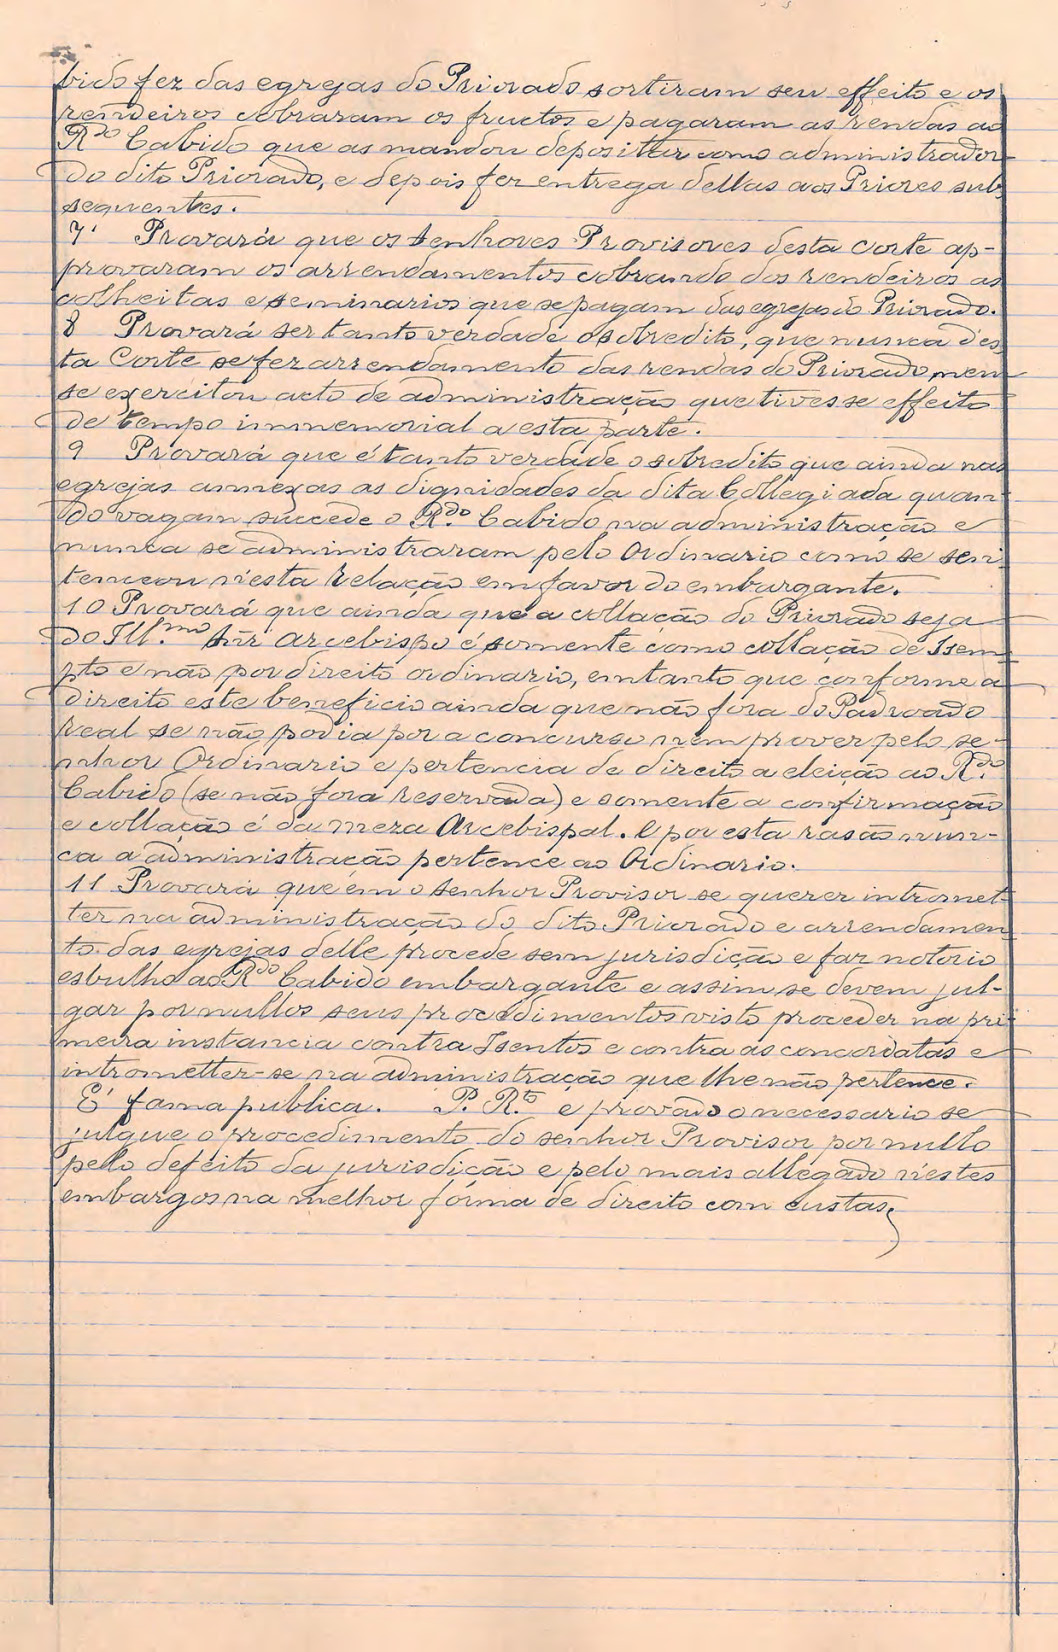 bido fez das egrejas do Priorado sortiram seu effeito e os
rendeiros cobraram os fructos e pagaram as rendas ao
R.do Cabido que as mandou depositar como administrador
do dito Priorado, e depois fez entrega dellas aos Priores sub-
sequentes.
7. Provará que os senhores Provisores desta corte ap-
provaram os arrendamentos cobrando dos rendeiros as
colheitas e seminarios que se pagam das egrejas do Priorado.
8 Provará ser tanto verdade o sobredito, que nunca des
ta Corte se fez arrendamento das rendas do Priorado, nem
se exercitou acto de administração que tivesse effeito
de tempo immemorial a esta parte.
9 Provará que é tanto verdade o sobredito que ainda nas
egrejas annexas as dignidades da dita Collegiada quan-
do vagam succede o R.do Cabido na administração e
nunca se administraram pelo Ordinario como se sen-
tenceou n'esta Relação em favor do embargante.
10 Provará que ainda que a collação do Priorado seja
do Ill.mo Snr Arcebispo é somente como collação de Isem-
pto e não por direito ordinario, emtanto que conforme a
direito este beneficio ainda que não fora do Padroado
Real se não podia por a concurso nem prover pelo se-
nhor Ordinario e pertencia de direito a eleição ao R.do
Cabido (se não fora reservada) e somente a confirmação
e collação é da meza Arcebispal. E por esta rasão nun-
ca a administração pertence ao Ordinario.
11 Provará que em o senhor Provisor se querer intromet-
ter na administração do dito Priorado e arrendamen
to das egrejas delle procede sem jurisdição e faz notorio
esbulho ao R.do Cabido embargante e assim se devem jul-
gar por nullos seus procedimentos visto proceder na pri
meira instancia contra Isentos e contra as concordatas e
intrometter-se na administração que lhe não pertence.
É fama publica. P. R.to e provado o necessario se
julgue o procedimento do senhor Provisor por nullo
pelo defeito da jurisdição e pelo mais allegado n'estes
embargos na melhor fórma de direito com custas.